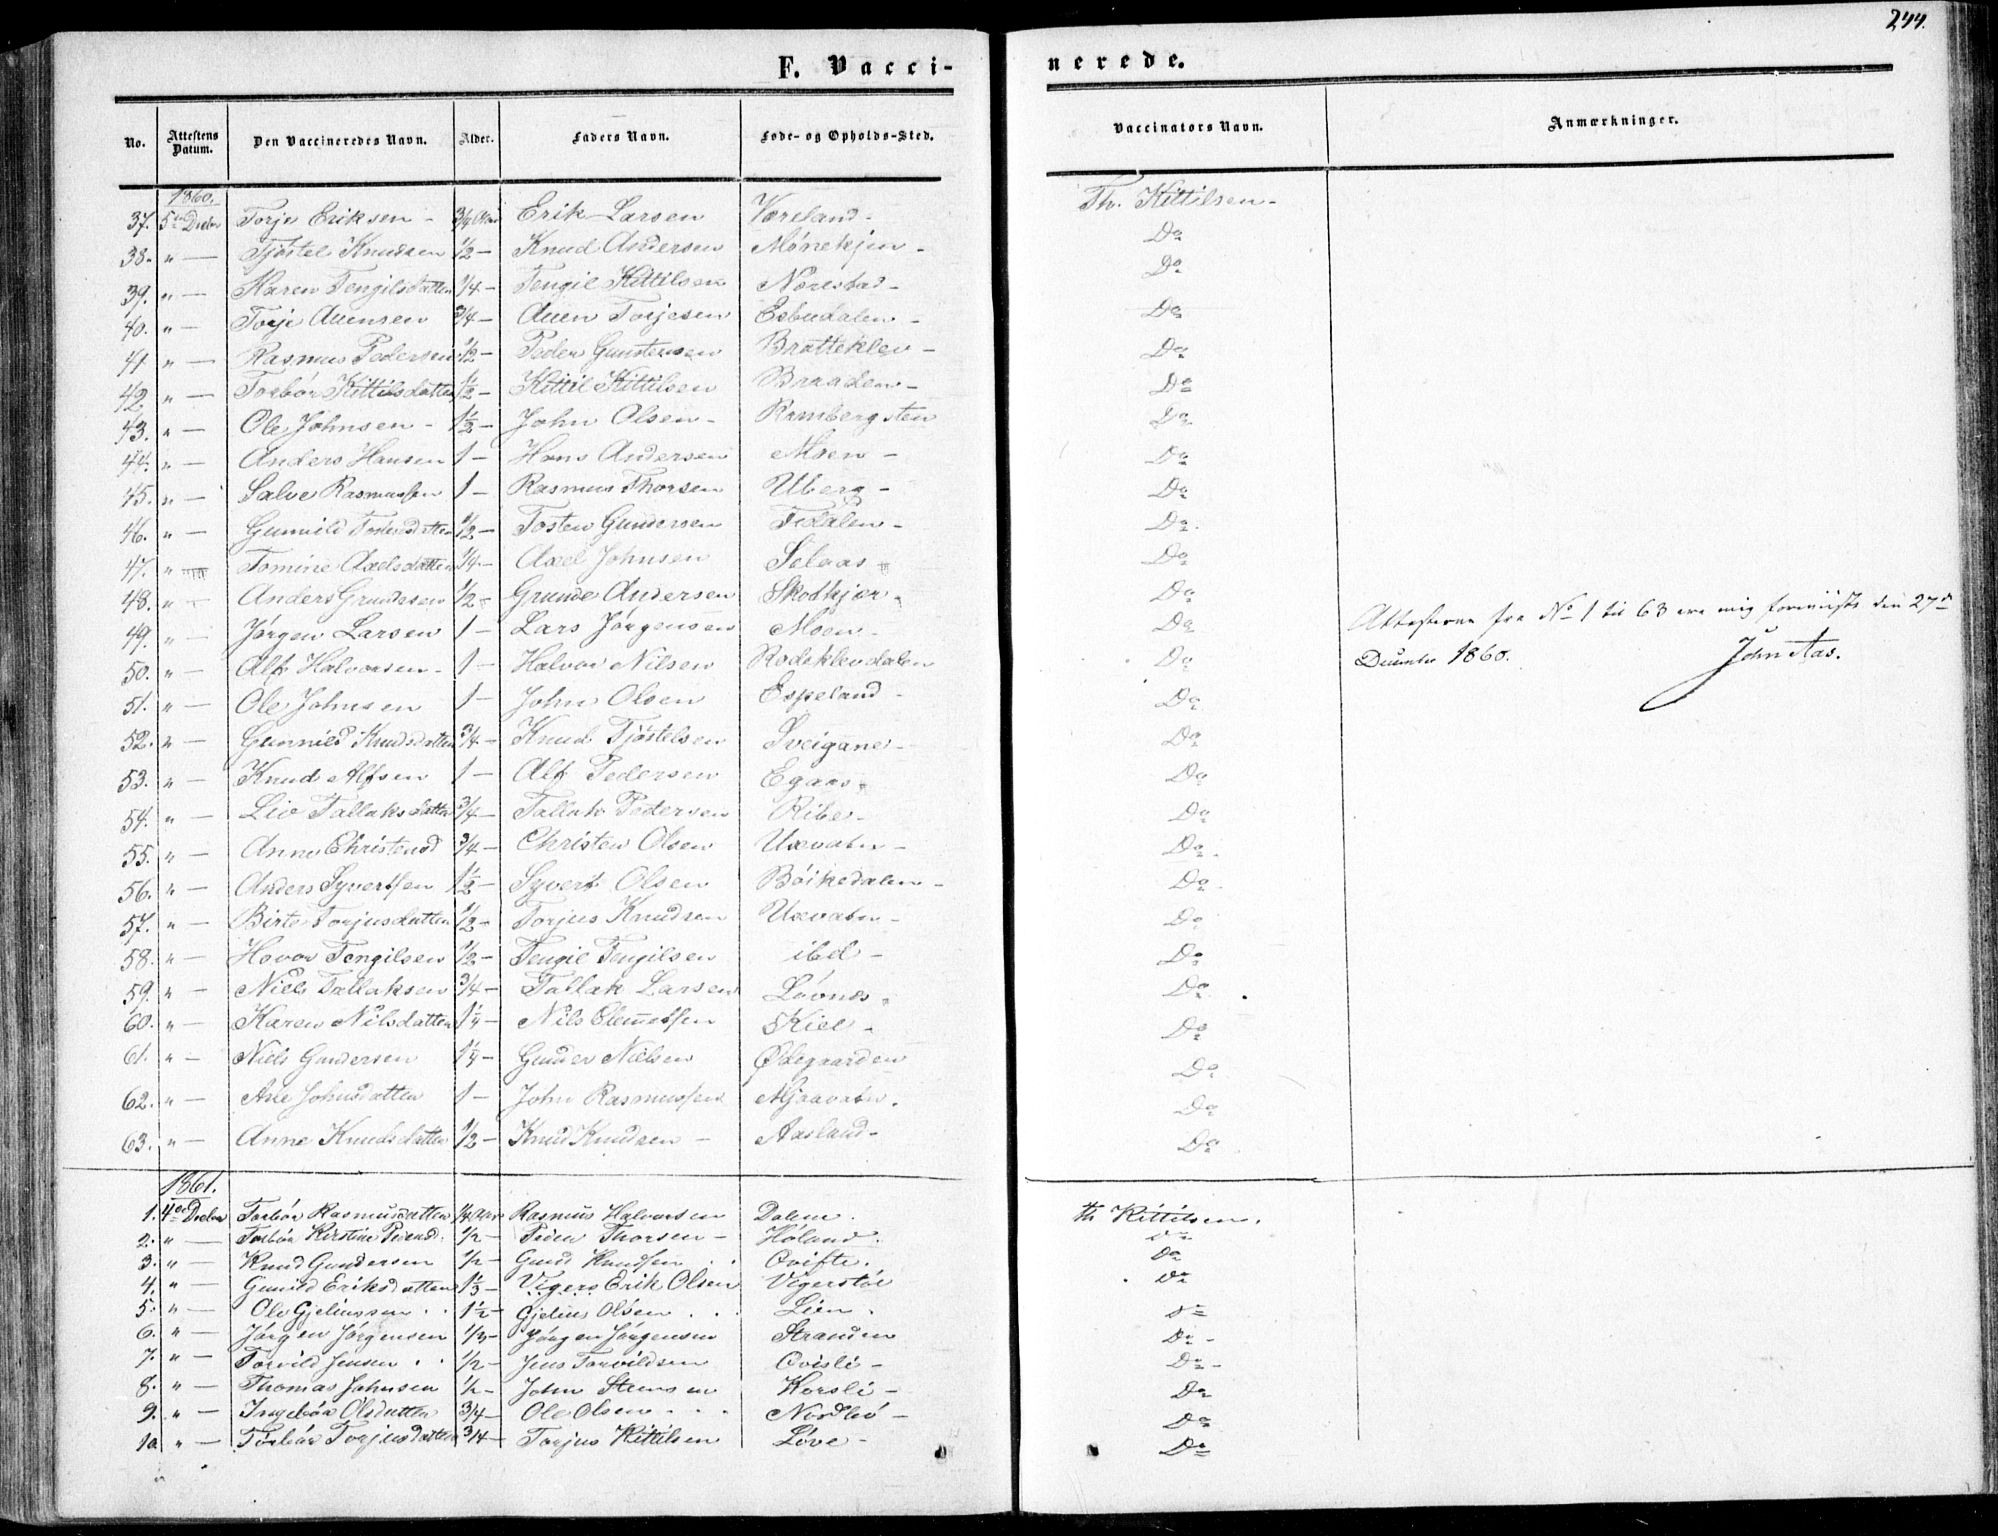 244.
F. Vaccinerede.
No. Attestens Datum. Den Vaccineredes Navn. Alder. Faders Navn. Føde- og Opholds-Sted. Vaccinators Navn. Anmærkninger.
1860.
37. 5te Decbr Torje Eriksen - 3/4 Erik Larsen Væreland - Th. Kittilsen -
38. " — Tjøstel Knudsen 1/2 - Knud Andersen Mønekjen - Do
39. " — Karen Tengilsdatter 1/4 - Tengil Kittilsen Norestad - Do
40. " — Torje Auensen 3/4 - Auen Torjesen Esbudalen - Do
41 " — Rasmus Pedersen 1/2 - Peder Gunstensen Bratteklev - Do
42 " — Torbør Kittilsdatter 1 1/2 - Kittil Kittilsen Braaden - Do
43. " — Ole Johnsen - 1 1/2 - John Olsen - Rambergsten Do
44. " — Anders Hansen 1 - Hans Andersen Moen - Do
45. " — Salve Rasmussen 1 - Rasmus Thorsen Uberg - Do
46. " — Gunvild Tostensdatter 1/2 - Tosten Gundersen Fidalen - Do.
47. " — Tomine Axelsdatter 1/4 - Axel Johnsen Selaas - Do
48. " — Anders Grundesen 1/2 - Grunde Andersen Skotkjær - Do
49. " — Jørgen Larsen 1 - Lars Jørgensen Moen - Do
Attesterne fra No 1 til 63 ere mig foreviiste den 27de
50. " — Alf Halvorsen - 1 - Halvor Nilsen Rodeklevdalen Do
December 1860. John Aas.
51. " — Ole Johnsen 1 - John Olsen Espeland - Do
52. " — Gunnild Knudsdatter 3/4 - Knud Tjøstelsen Sveigane - Do
53. " — Knud Alfsen 1 - Alf Pedersen Egaas - Do
54. " — Liv Tallaksdatter 3/4 - Tallak Pedersen Ribe - Do
55. " — Anne Christensd 3/4 - Christen Olsen Uxvatn - Do.
56. " — Anders Syvertsen 1 1/2 - Syvert Olsen Bøikedalen - Do.
57. " — Birte Torjusdatter 1/2 - Torjus Knudsen Uxvatn - Do
58. " — Hovor Tengilsen 1/2 - Tengil Tengilsen ibd - Do
59. " — Niels Tallaksen 3/4 - Tallak Larsen Løvnes - Do
60. " — Karen Nilsdatter 1 1/4 - Nils Clemetsen Kiel - Do
61. " — Niels Gundersen 1 1/4 - Gunder Nielsen Ødegaarden Do
62. " — Ane Johnsdatter 1 - John Rasmussen Mjaavatn. Do
63. " — Anne Knudsdatter 1/2 - Knud Knudsen - Aasland - Do
1861.
1. 4de Decbr Torbør Rasmusdatter 1/4 Rasmus Halvorsen Dalene. Th Kittilsen.
2. " — Torbør Kirstine Pedersd. 1/2 - Peder Thorsen - Høland. Do
3. " — Knud Gundersen 1/2 - Knudsen Qvifte. Do
4. " — Gunild Eriksdatter 1 1/3 - Vigers Erik Olsen Vigerstøl Do
5. " — Ole Gjeliussen . . 1 1/2 - Gjelius Olsen . . . Lien. Do
6. " — Jørgen Jørgensen 1/3 - Jørgen Jørgensen Stranden Do -
7. " — Torvild Jensen . . 1/2 - Jens Torvildsen Qvisli - Do -
8. " — Thomas Johnsen 1/2 - John Korsli - Do
9. " — Ingebør Olsdatter 3/4 - Ole Olsen . . . Nordbø - Do
10 " — Torbør Torjusdatter 3/4 - Torjus Kittilsen Løve - Do